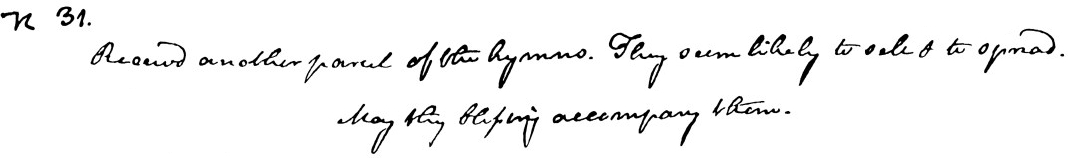 31.
Receivd another parcel of the hymns. They seem likely to sell & to spread.
May thy blessing accompany them.